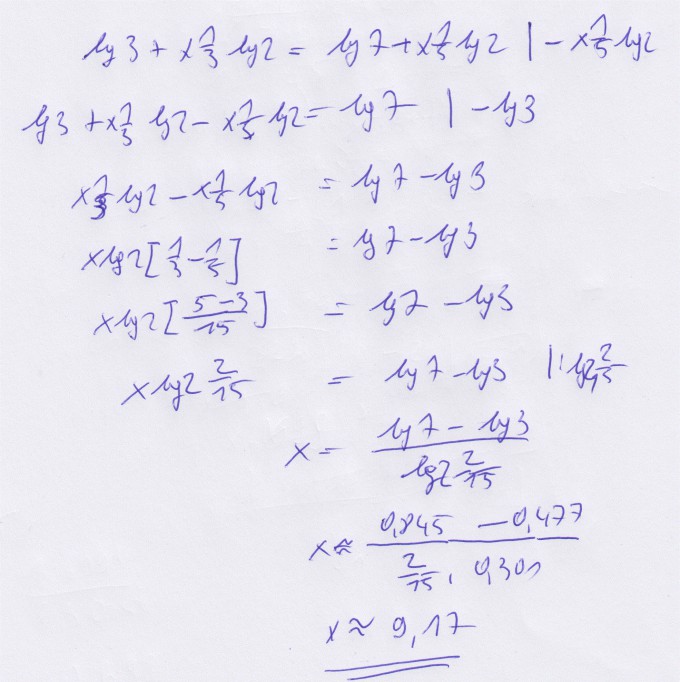 lg 3 + x 1/3 lg 2 = lg 7 + x 1/5 lg 2 | - x 1/5 lg 2
lg 3 + x 1/3 lg 2 - x 1/5 lg 2 = lg 7 | - lg 3
x 1/3 lg 2 - x 1/5 lg 2 = lg 7 - lg 3
x lg 2 [1/3 - 1/5] = lg 7 - lg 3
x lg 2 [(5-3)/15] = lg 7 - lg 3
x lg 2 2/15 = lg 7 - lg 3 | : lg 2 2/15
x = (lg 7 - lg 3)/(lg 2 2/15)
x ≈ (0,845 - 0,477)/(2/15 · 0,301)
x ≈ 9,17